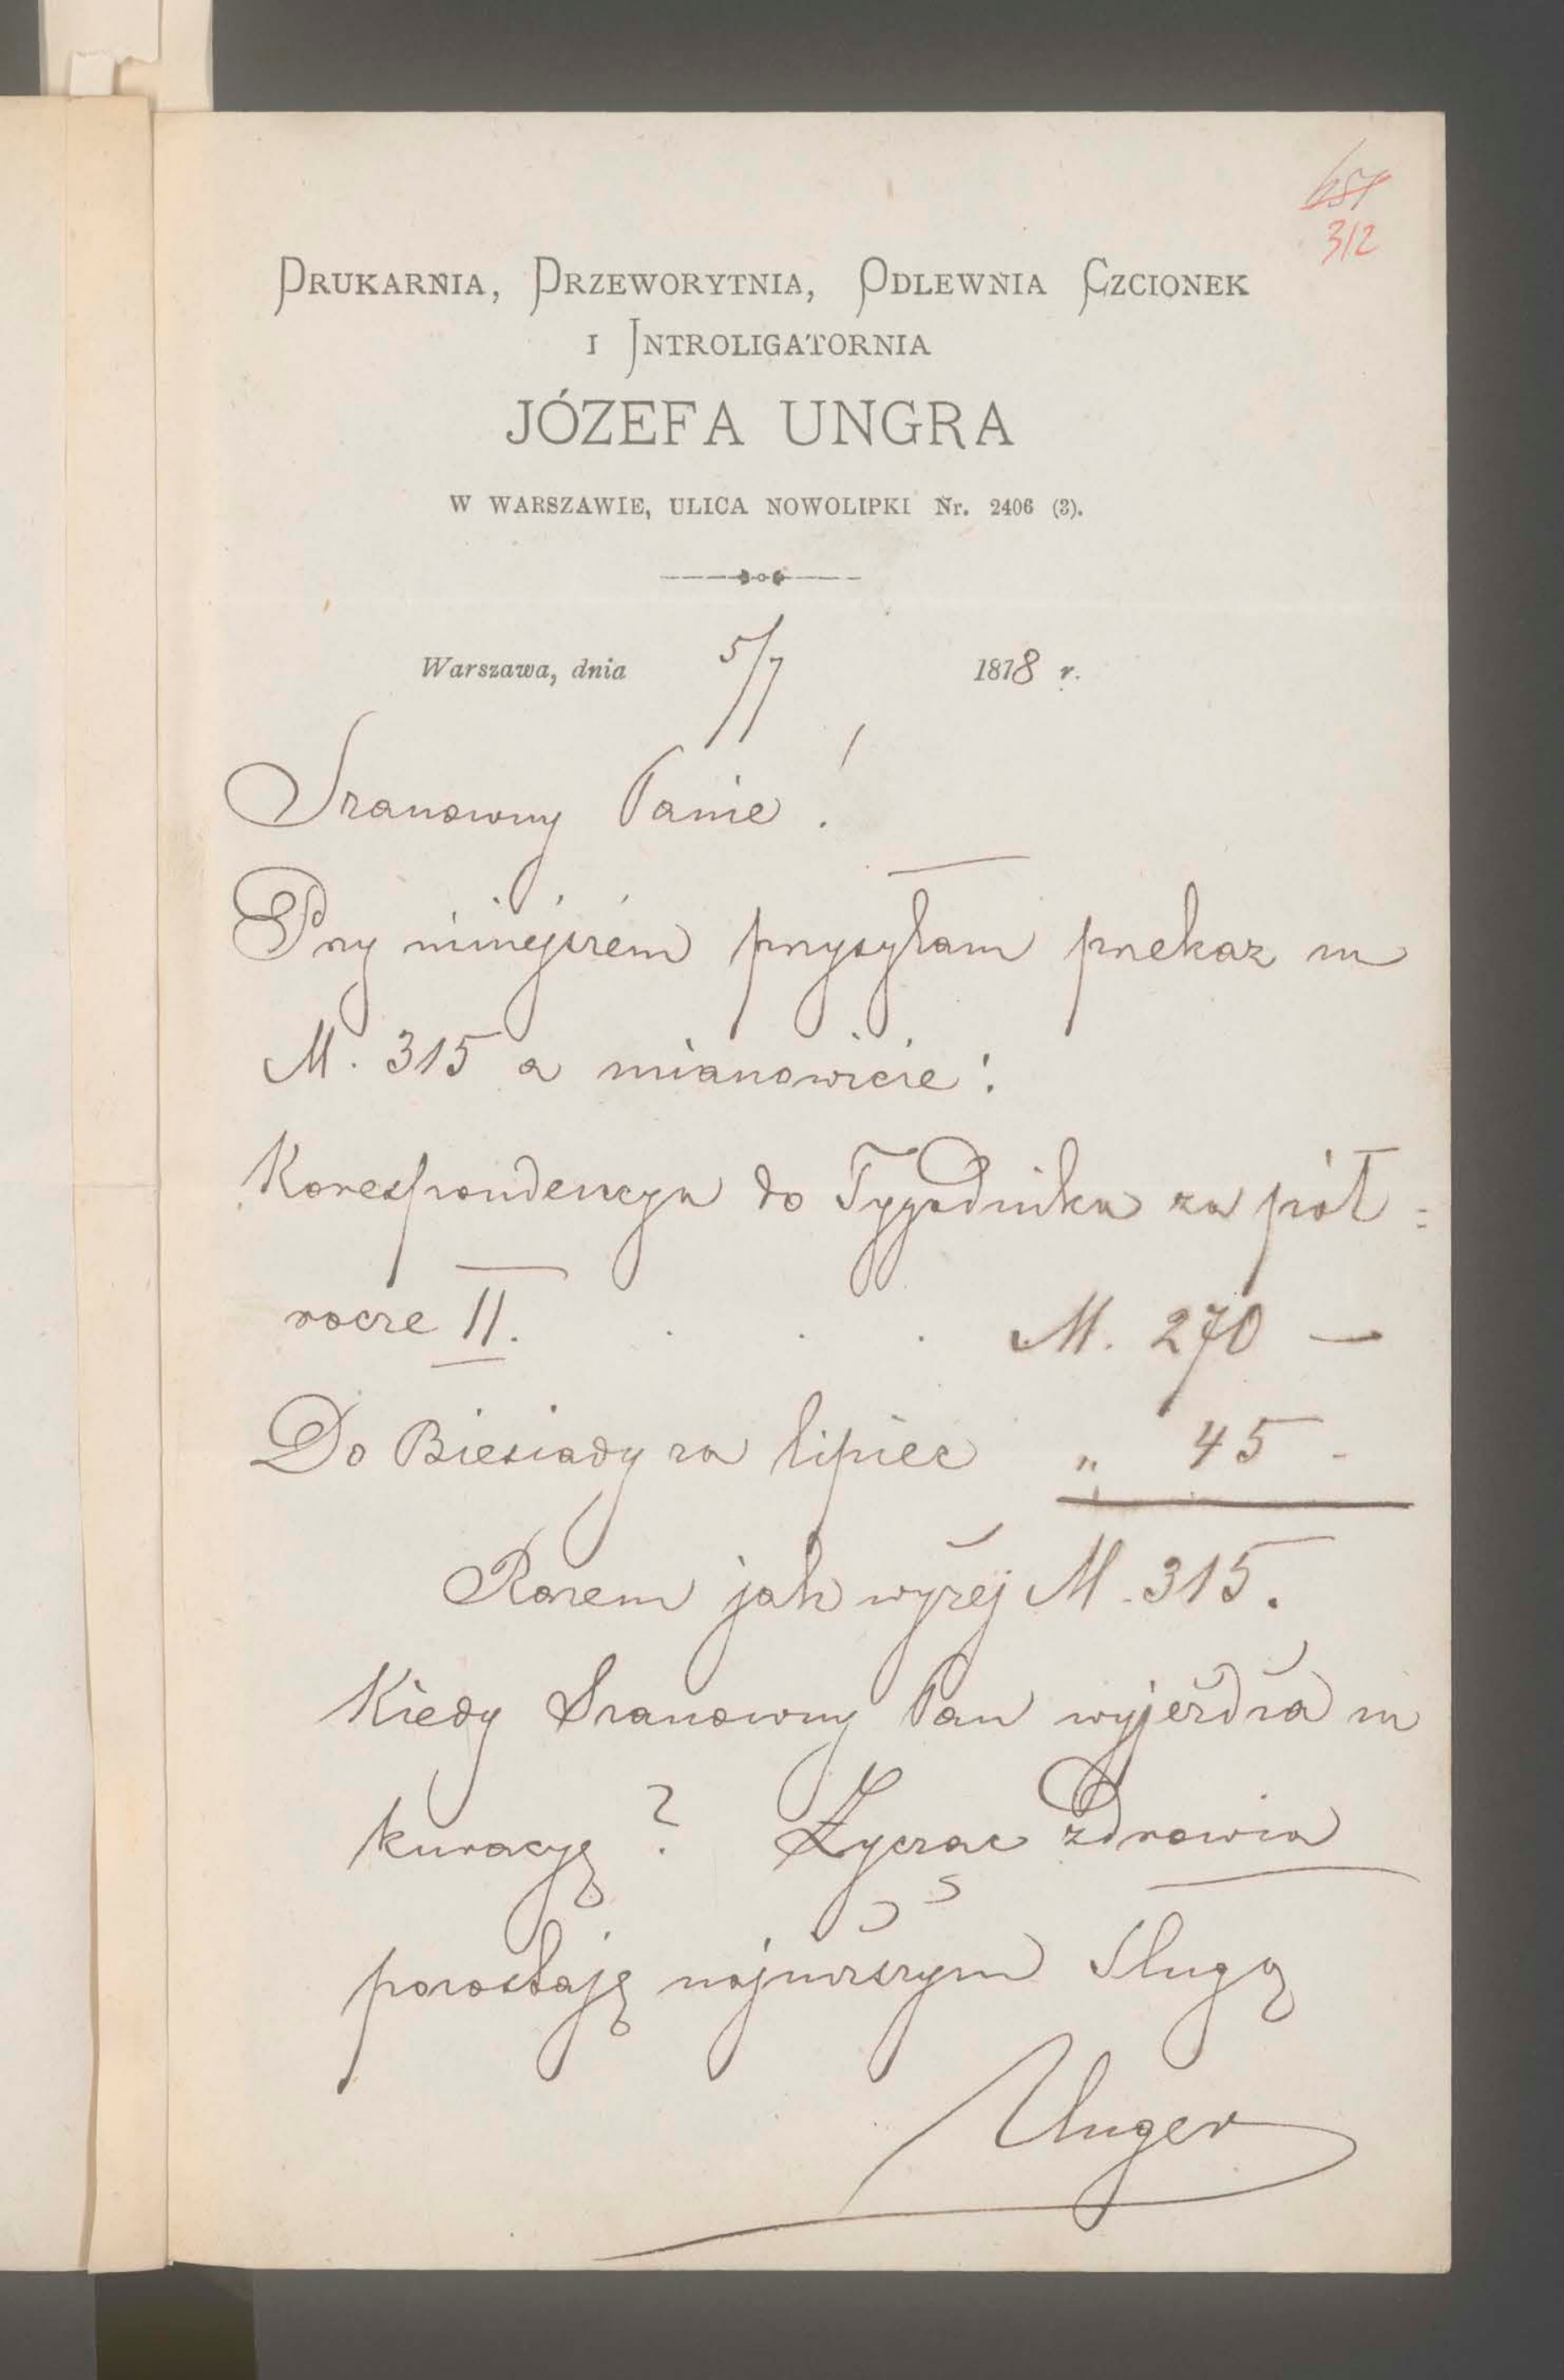 312
DRUKARNIA, DRZEWORYTNIA, ODLEWNIA CZCIONEK
I INTROLIGATORNIA
JÓZEFA UNGRA
W WARSZAWIE, ULICA NOWOLIPKI Nr. 2406 (3).
Warszawa, dnia 5/7 1878 r.
Szanowny Panie!
Przy niniejszém przysyłam przekaz na
M. 315 a mianowicie:
Korespondencya do Tygodnika za pół=
rocze II. . . . M. 270 —
Do Biesiady za lipiec „ 45 -
Razem jak wyżej M. 315.
Kiedy Szanowny Pan wyjeżdża na
kuracyę? Życząc zdrowia
pozostaję najniższym sługą
Unger